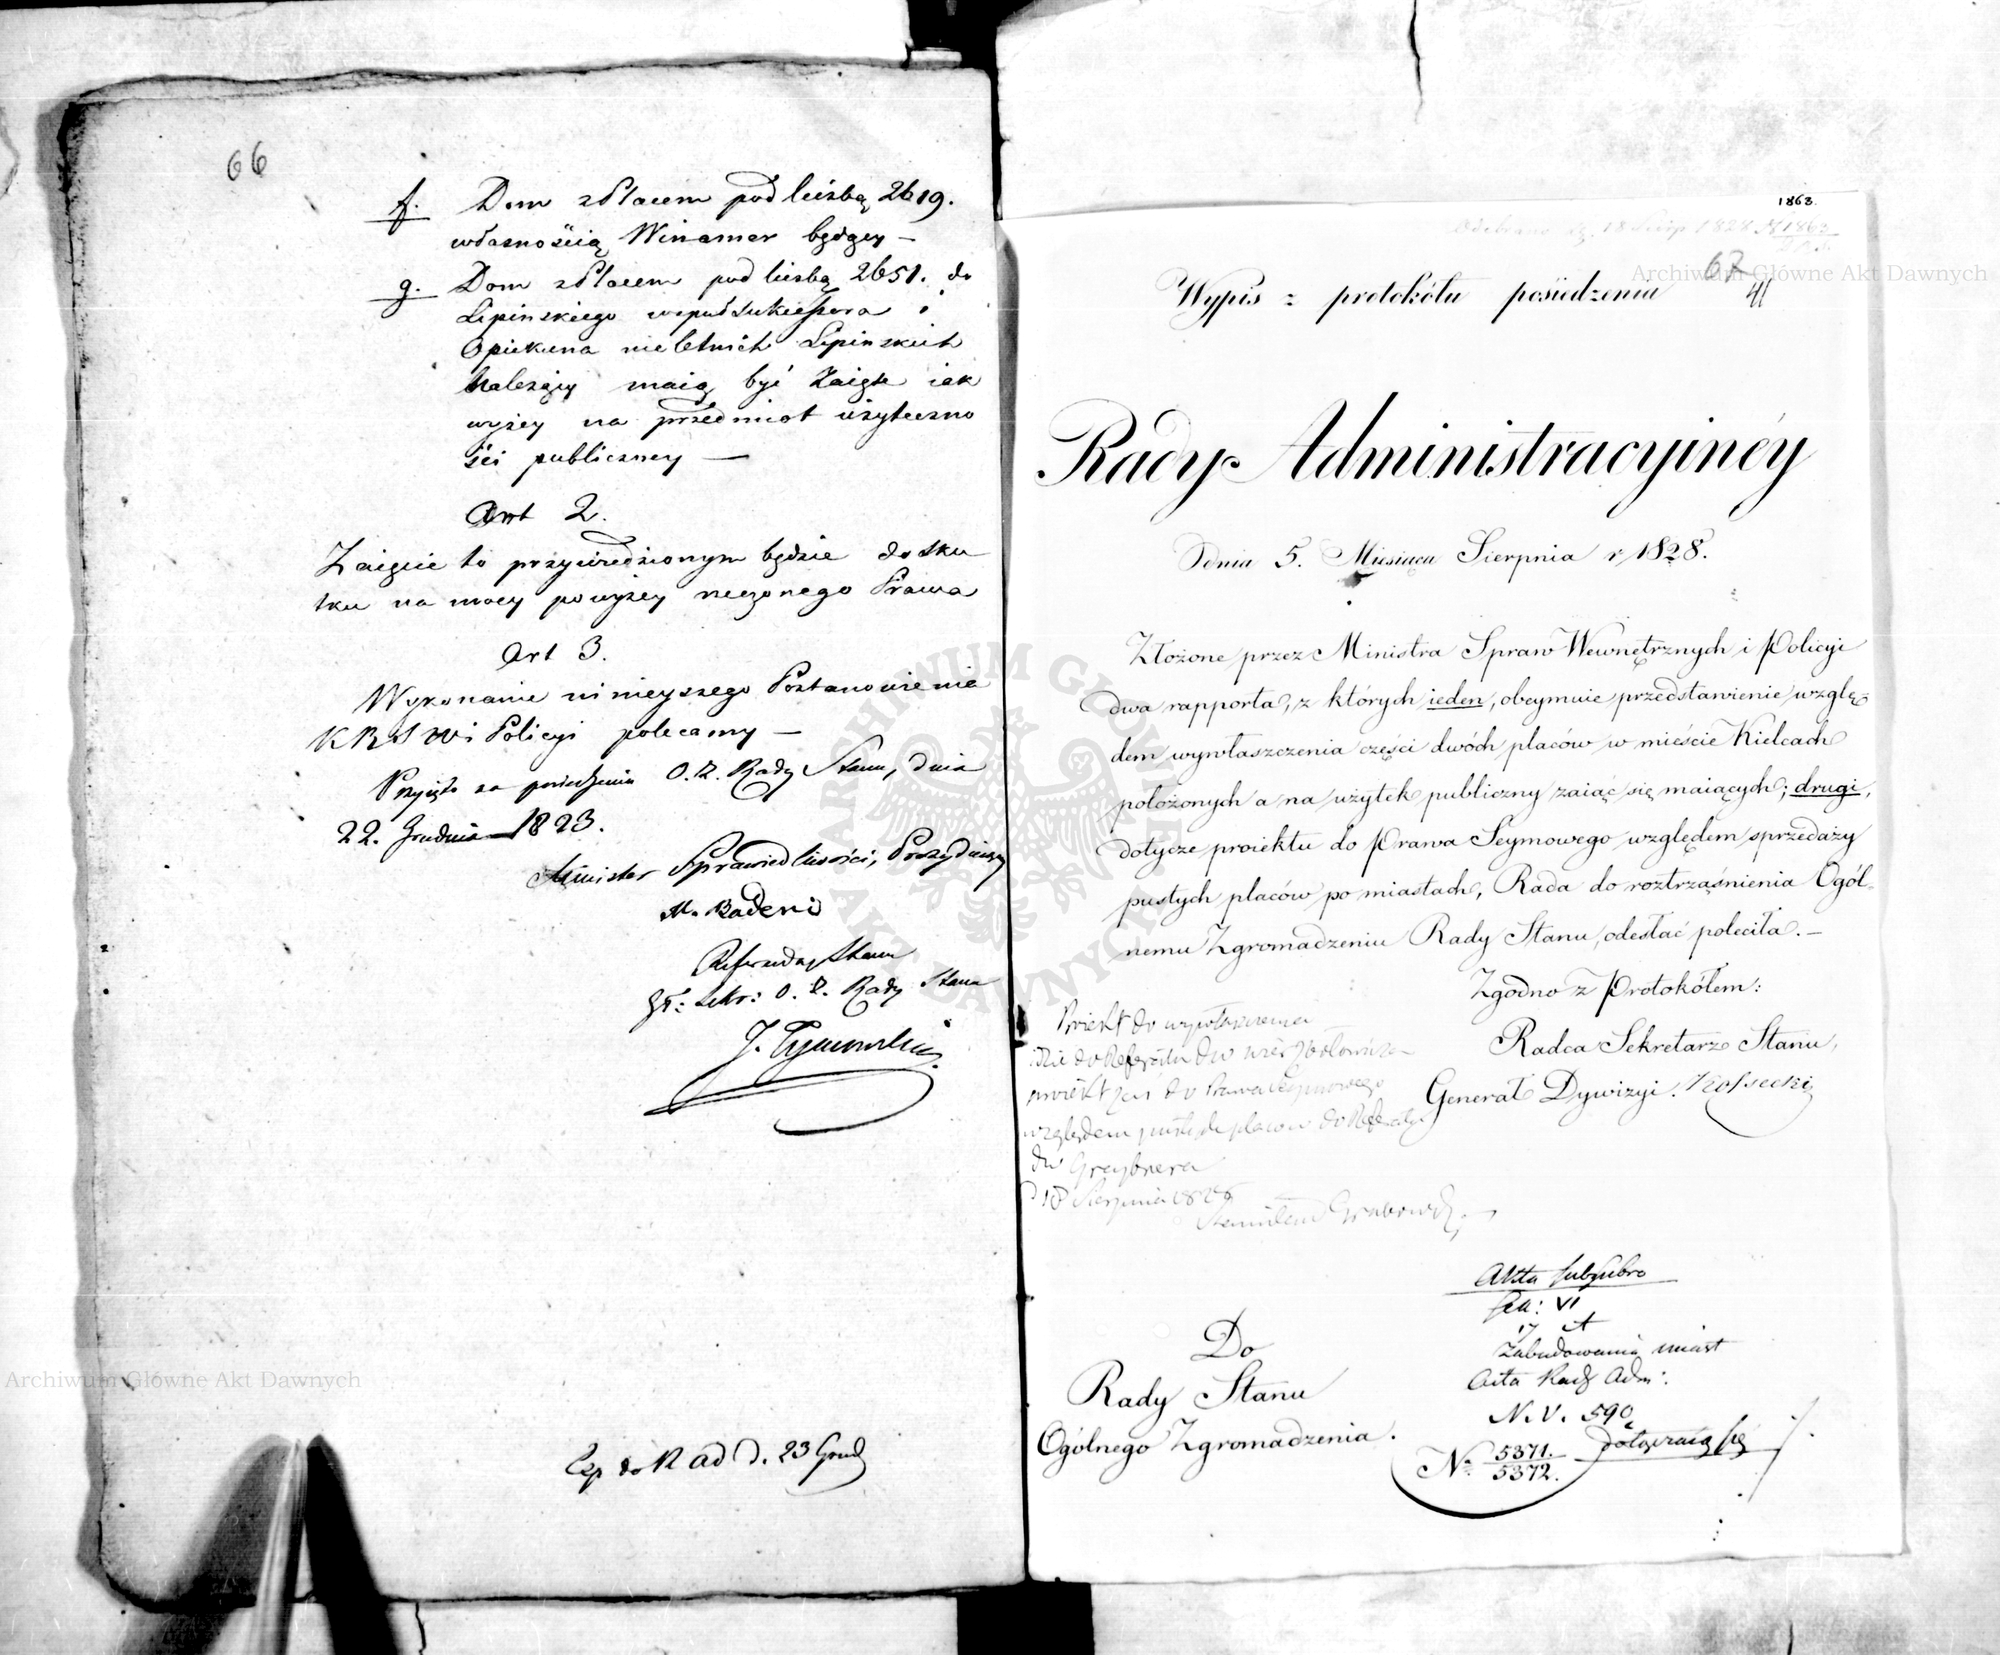 66
f. Dom z Placem pod liczbą 2619.
własnością Winamer będący —
g. Dom z Placem pod liczbą 2651. do
Lipińskiego współsukcessora i
Opiekuna nieletnich Lipinskich
należący maią być Zaięte iak
wyżey na przedmiot użyteczno
ści publiczney —
Art 2.
Zaięcie to przywiedzionym będzie do sku
tku na mocy powyżey rzeczonego Prawa
Art 3.
Wykonanie ninieyszego Postanowienia
KRSW i Policyi polecamy —
Przyięto na posiedzeniu O. Z. Rady Stanu, dnia
22. Grudnia 1823.
Minister Sprawiedliwości, Prezyduiący
M. Badeni
Referendarz Stanu
Sekr: O. Z. Rady Stanu
J. Tymowski
Exp do R Ad D. 23 Grud
1863.
Odebrano d. 18 Sierp 1828 N 1863
67
41
Wypis z protokółu posiedzenia
Rady Administracyinéy
Dnia 5. Miesiąca Sierpnia r. 1828.
Złożone przez Ministra Spraw Wewnętrznych i Policyi
dwa rapporta, z których ieden, obeymuie przedstawienie wzglę
dem wywłaszczenia części dwóch placów w mieście Kielcach
położonych a na użytek publiczny zaiąć się maiących; drugi,
dotycze proiektu do Prawa Seymowego względem sprzedaży
pustych placów po miastach, Rada do roztrząśnienia Ogól-
nemu Zgromadzeniu Rady Stanu, odesłać poleciła. —
Zgodno z Protokółem:
Radca Sekretarz Stanu,
Generał Dywizyi. Kossecki
Proiekt do wywłaszczenia
idzie do Referatu JW Wierzbołowicza
proiekt zaś do Prawa Seymowego
względem pustych placow do Referatu
JW Greybnera
d 18 Sierpnia 1828
Stanisław Grabowski
Akta
Sea: VI
Zabudowania miast
Akta Rady Adm:
N. V. 590
dołączaią się
No. 5371.
5372.
Do
Rady Stanu
Ogólnego Zgromadzenia.
Archiwum Główne Akt Dawnych
Archiwum Główne Akt Dawnych
ARCHIWUM GŁÓWNE AKT DAWNYCH